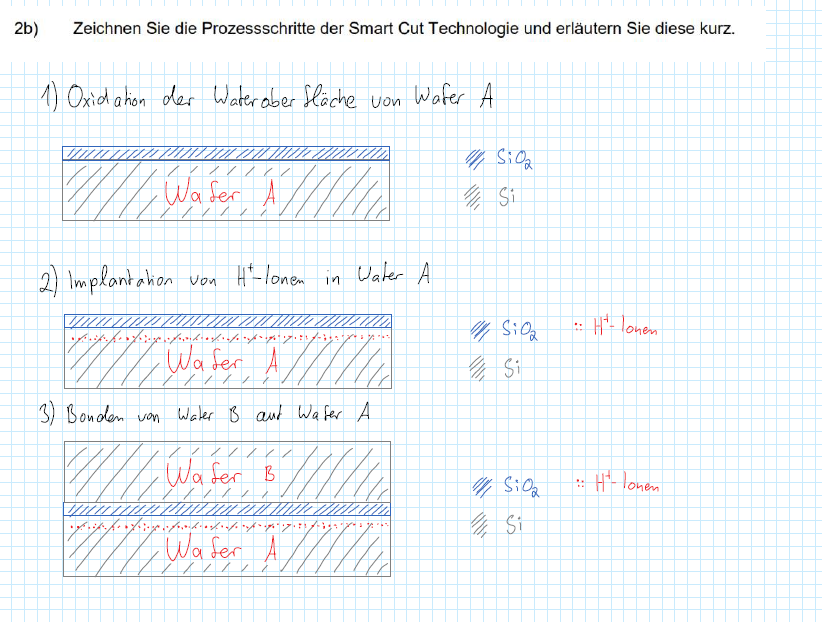 2b) Zeichnen Sie die Prozessschritte der Smart Cut Technologie und erläutern Sie diese kurz.
1) Oxidation der Waferoberfläche von Wafer A
SiO₂
Wafer A
Si
2) Implantation von H⁺-Ionen in Wafer A
SiO₂ :: H⁺-Ionen
Wafer A
Si
3) Bonden von Wafer B auf Wafer A
Wafer B
SiO₂ :: H⁺-Ionen
Si
Wafer A